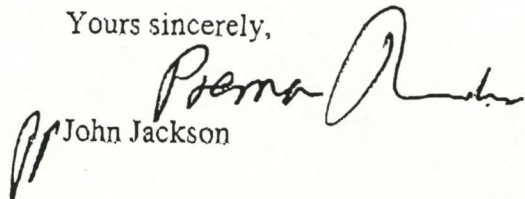 Yours sincerely,
pp John Jackson